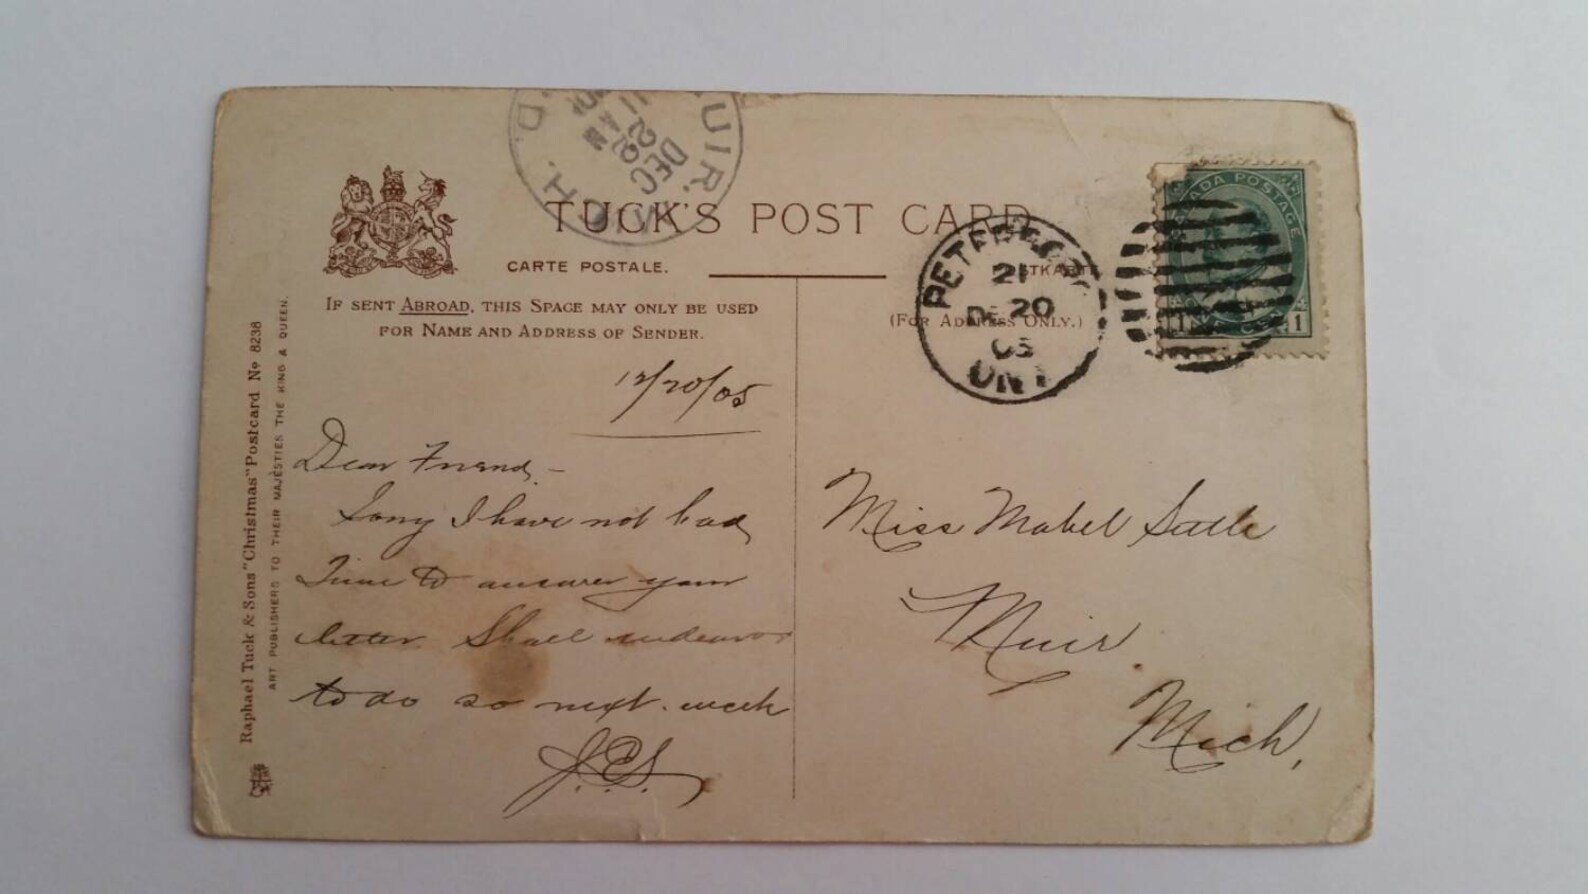 UIR.
DEC
22
11 AM
MICH.
TUCK'S POST CARD
CARTE POSTALE.
IF SENT ABROAD, THIS SPACE MAY ONLY BE USED
FOR NAME AND ADDRESS OF SENDER.
(FOR ADDRESS ONLY.)
PETERBORO
21
DE 20
05
ONT
CANADA POSTAGE
1 1
12/20/05
Dear Friend, -
Sorry I have not had
time to answer your
letter. Shall endeavor
to do so next week
J.E.S.
Miss Mabel
Muir
Mich,
Raphael Tuck & Sons "Christmas" Postcard No 8238
ART PUBLISHERS TO THEIR MAJESTIES THE KING & QUEEN.